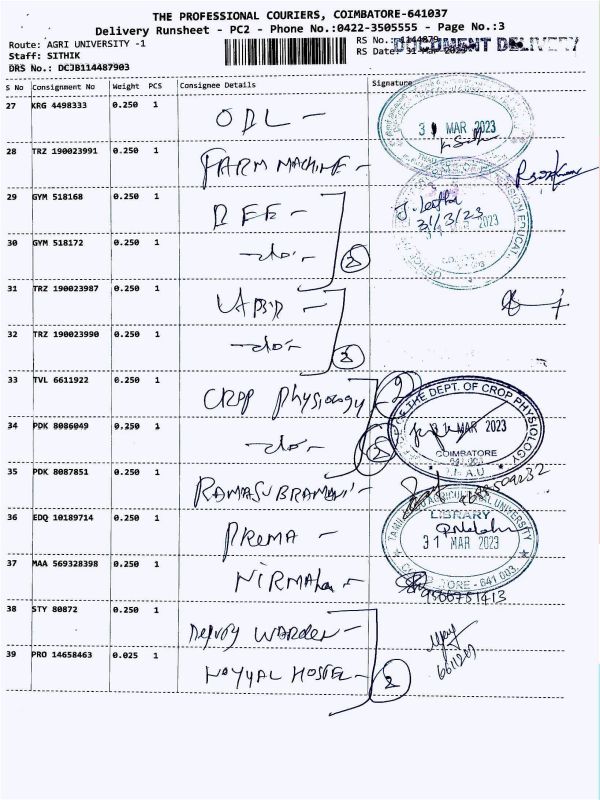 THE PROFESSIONAL COURIERS, COIMBATORE-641037
Delivery Runsheet - PC2 - Phone No.:0422-3505555 - Page No.:3
Route: AGRI UNIVERSITY -1
Staff: SITHIK
DRS No.: DCJB114487903
RS No.:
RS Date: 31 Mar 2023
DOCUMENT DELIVERY
S No Consignment No Weight PCS Consignee Details Signature
27 KRG 4498333 0.250 1 ODL -
31 MAR 2023
28 TRZ 190023991 0.250 1 FARM MACHINE -
29 GYM 518168 0.250 1 DEE -
31/3/23
30 GYM 518172 0.250 1 -do- 2
31 TRZ 190023987 0.250 1
32 TRZ 190023990 0.250 1 -do- 2
33 TVL 6611922 0.250 1 CROP Physiology
THE DEPT. OF CROP PHYSIOLOGY
31 MAR 2023
COIMBATORE
34 PDK 8086049 0.250 1 -do- 2
35 PDK 8087851 0.250 1 RAMASUBRAMANI -
36 EDQ 10189714 0.250 1 PREMA -
TAMIL NADU AGRICULTURAL UNIVERSITY
LIBRARY
31 MAR 2023
COIMBATORE - 641 003.
37 MAA 569328398 0.250 1 NIRMALA -
9566751413
38 STY 80872 0.250 1 Deputy WARDEN -
39 PRO 14658463 0.025 1 NOYYAL HOSTEL - 2